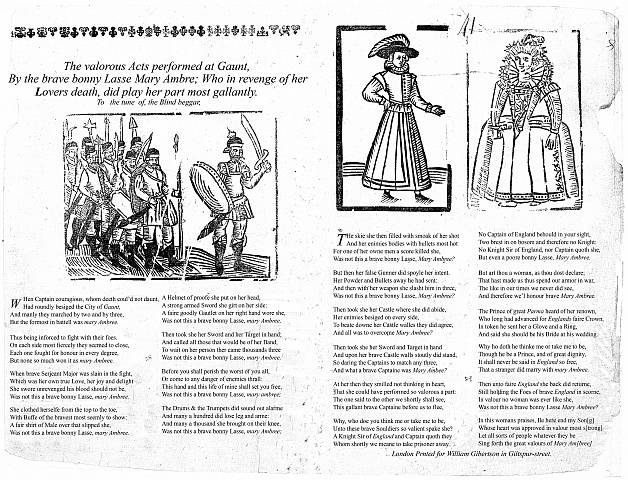 The valorous Acts performed at Gaunt,
By the brave bonny Lasse Mary Ambre; Who in revenge of her
Lovers death, did play her part most gallantly.
To the tune of, the Blind beggar,
When Captain couragious, whom death could'not daunt,
Had roundly besiged the City of Gaunt,
And manly they marched by two and by three,
But the formost in battell was mary Ambree.
Thus being inforced to fight with their foes.
On each side most fiercely they seemed to close,
Each one fought for honour in every degree,
But none so much won it as mary Ambree.
When brave Serjeant Major was slain in the fight,
Which was her own true Love, her joy and delight
She swore unrevenged his blood should not be,
Was not this a brave bonny Lasse, mary Ambree.
She clothed herselfe from the top to the toe,
With Buffe of the bravest most seemly to show.
A fair shirt of Male over that slipped she,
Was not this a brave bonny Lasse, mary Ambree.
A Helmet of proofe she put on her head,
A strong armed Sword she girt on her side;
A faire goodly Gautlet on her right hand wore she,
Was not this a brave bonny Lasse, mary Ambree.
Then took she her Sword and her Target in hand,
And called all those that would be of her Band,
To wait on her person there came thousands three
Was not this a brave bonny Lasse, mary Ambree.
Before you shall perish the worst of you all,
Or come to any danger of enemies thrall:
This hand and this life of mine shall set you free,
Was not this a brave bonny Lasse, mary ambree;
The Drums & the Trumpets did sound out alarme
And many a hundred did lose leg and arme:
And many a thousand she brought on their knee,
Was not this a brave bonny Lasse, mary Ambree;
The skie she then filled with smoak of her shot
And her enimies bodies with bullets most hot
For one of her owne men a score killed she,
Was not this a brave bonny Lasse, Mary Ambree?
But then her false Gunner did spoyle her intent.
Her Powder and Bullets away he had sent:
And then with her weapon she slasht him in three,
Was not this a brave bonny Lasse, Mary Ambree?
Then took she her Castle where she did abide,
Her enimies besiged on every side,
To beate downe her Castle walles they did agree,
And all was to overcome Mary-Ambree?
Then took she her Sword and Target in hand
And upon her brave Castle walls stoutly did stand,
So daring the Captains to match any three,
And what a brave Captaine was Mary Ambee?
At her then they smiled not thinking in heart,
That she could have performed so valorous a part:
The one said to the other we shortly shall see,
This gallant brave Captaine before us to flee,
Why, who doe you think me or take me to be,
Unto these brave Souldiers so valient spake she?
A Knight Sir of England and Captain quoth they
Whom shortly we meane to take prisoner away.
No Captain of England behould in your sight,
Two brest in on bosom and therefore no Knight:
No Knight Sir of England, nor Captain quoth she,
But even a poore bonny Lasse, Mary Ambree.
But art thou a woman, as thou dost declare,
That hast made us thus spend our armor in war,
The like in our times we never did see,
And therefore we'l honour brave Mary Ambree.
The Prince of great Parma heard of her renown,
Who long had advanced for Englands faire Crown,
In token he sent her a Glove and a Ring,
And said she should be his Bride at his wedding.
Why ho doth he think me or take me to be,
Though he be a Prince, and of great dignity,
It shall never be said in England so free,
That a stranger did marry with mary Ambree.
Then unto faire England she back did returne,
Still holding the Foes of brave England in scorne,
In valour no woman was ever like she,
Was not this a brave bonny Lasse Mary Ambree?
In this womans praises, Ile here end my Son[g]
Whose heart was approved in valour most s[trong]
Let all sorts of people whatever they be
Sing forth the great valours of Mary Am[bree]
London Printed for William Gibertson in Giltspur-street.